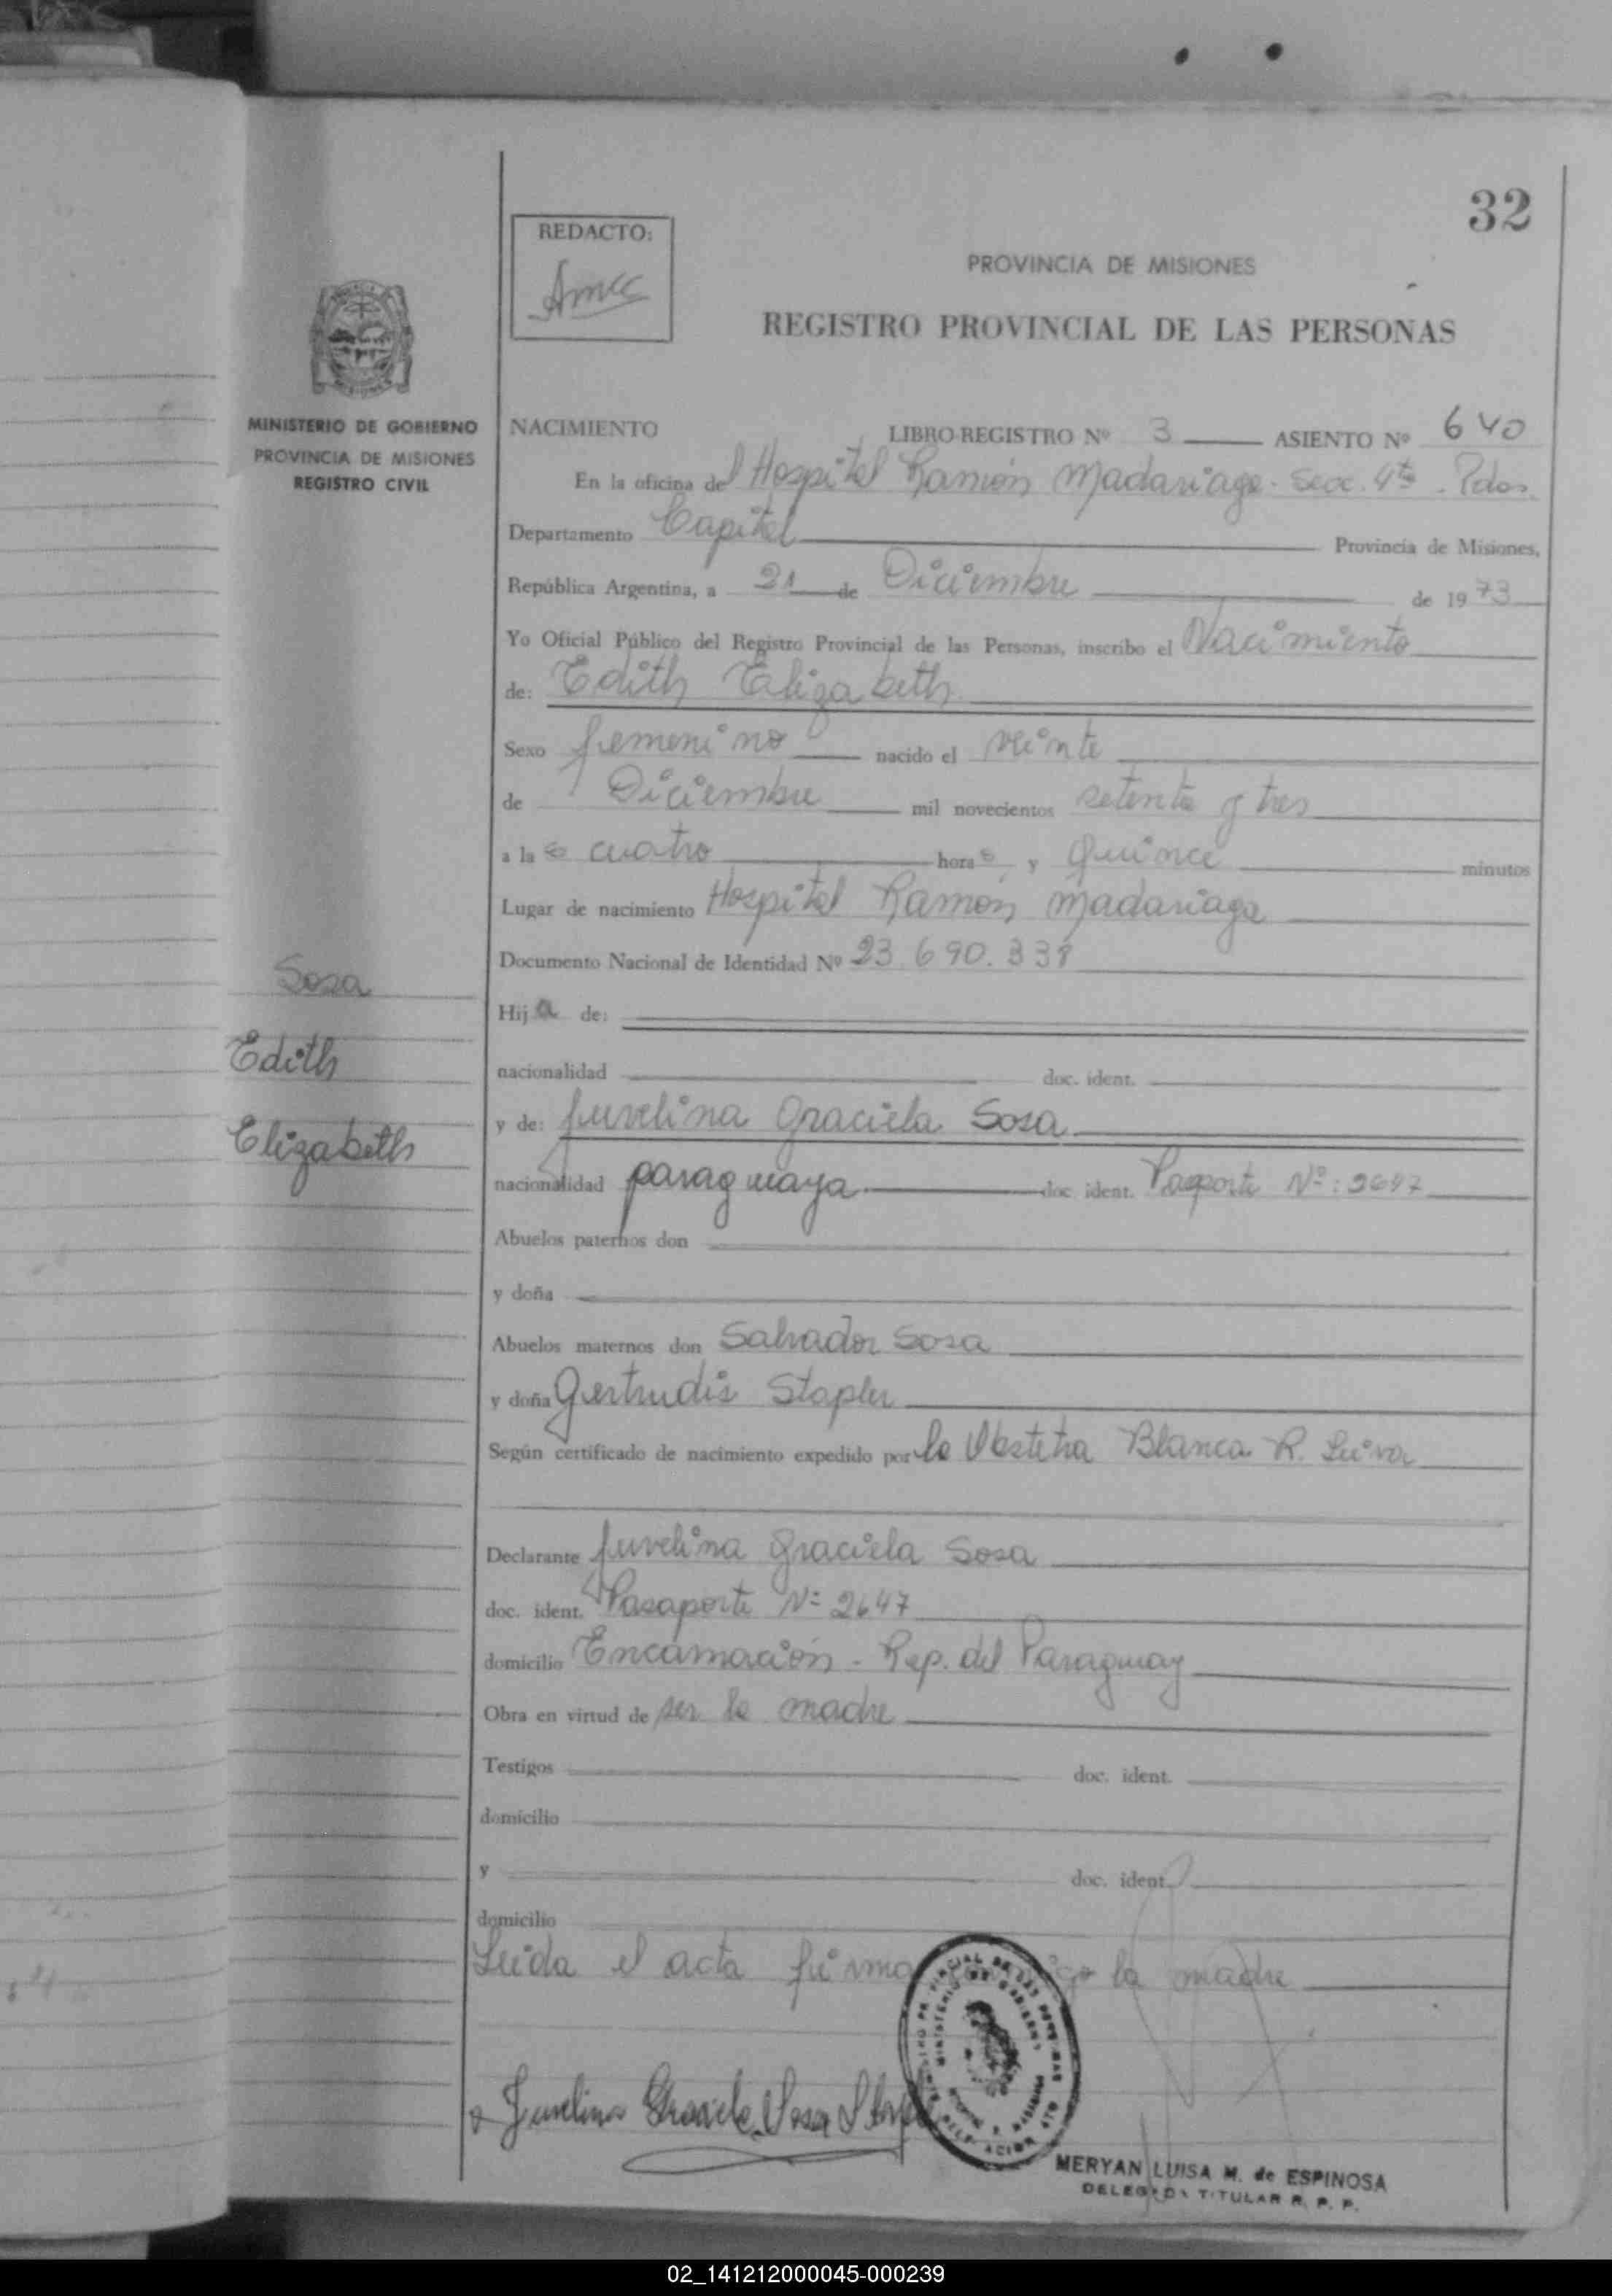 32
REDACTO:
PROVINCIA DE MISIONES
REGISTRO PROVINCIAL DE LAS PERSONAS
MINISTERIO DE GOBIERNO
PROVINCIA DE MISIONES
REGISTRO CIVIL
NACIMIENTO LIBRO-REGISTRO Nº 3 ASIENTO Nº 640
En la oficina del Hospital Ramón Madariaga. Secc. 4ta. Pdas.
Departamento Capital Provincia de Misiones,
República Argentina, a 21 de Diciembre de 1973
Yo Oficial Público del Registro Provincial de las Personas, inscribo el Nacimiento
de: Edith Elizabeth
Sexo femenino nacido el veinte
de Diciembre mil novecientos setenta y tres
a las cuatro horas y quince minutos
Lugar de nacimiento Hospital Ramón Madariaga
Documento Nacional de Identidad Nº 23.690.338
Sosa
Edith
Elizabeth
Hija de:
nacionalidad doc. ident.
y de: Juvelina Graciela Sosa
nacionalidad paraguaya doc. ident. Pasaporte Nº: 2647
Abuelos paternos don
y doña
Abuelos maternos don Salvador Sosa
y doña Gertrudis Stapler
Según certificado de nacimiento expedido por la Obstetra Blanca R. Leiva
Declarante Juvelina Graciela Sosa
doc. ident. Pasaporte Nº 2647
domicilio Encarnación - Rep. del Paraguay
Obra en virtud de ser la madre
Testigos doc. ident.
domicilio
y doc. ident.
domicilio
Leida el acta firma la madre
Juvelina Graciela Sosa
MERYAN LUISA M. de ESPINOSA
DELEGADA TITULAR R. P. P.
02_141212000045-000239